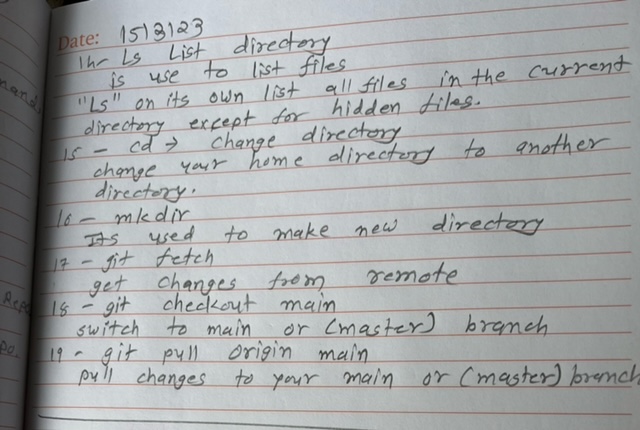 Date: 15/3/23
14- Ls List directory
is use to list files
"Ls" on its own list all files in the current
directory except for hidden files.
15 - cd → change directory
change your home directory to another
directory.
16 - mkdir
Its used to make new directory
17 - git fetch
get changes from remote
18 - git checkout main
switch to main or (master) branch
19 - git pull origin main
pull changes to your main or (master) branch